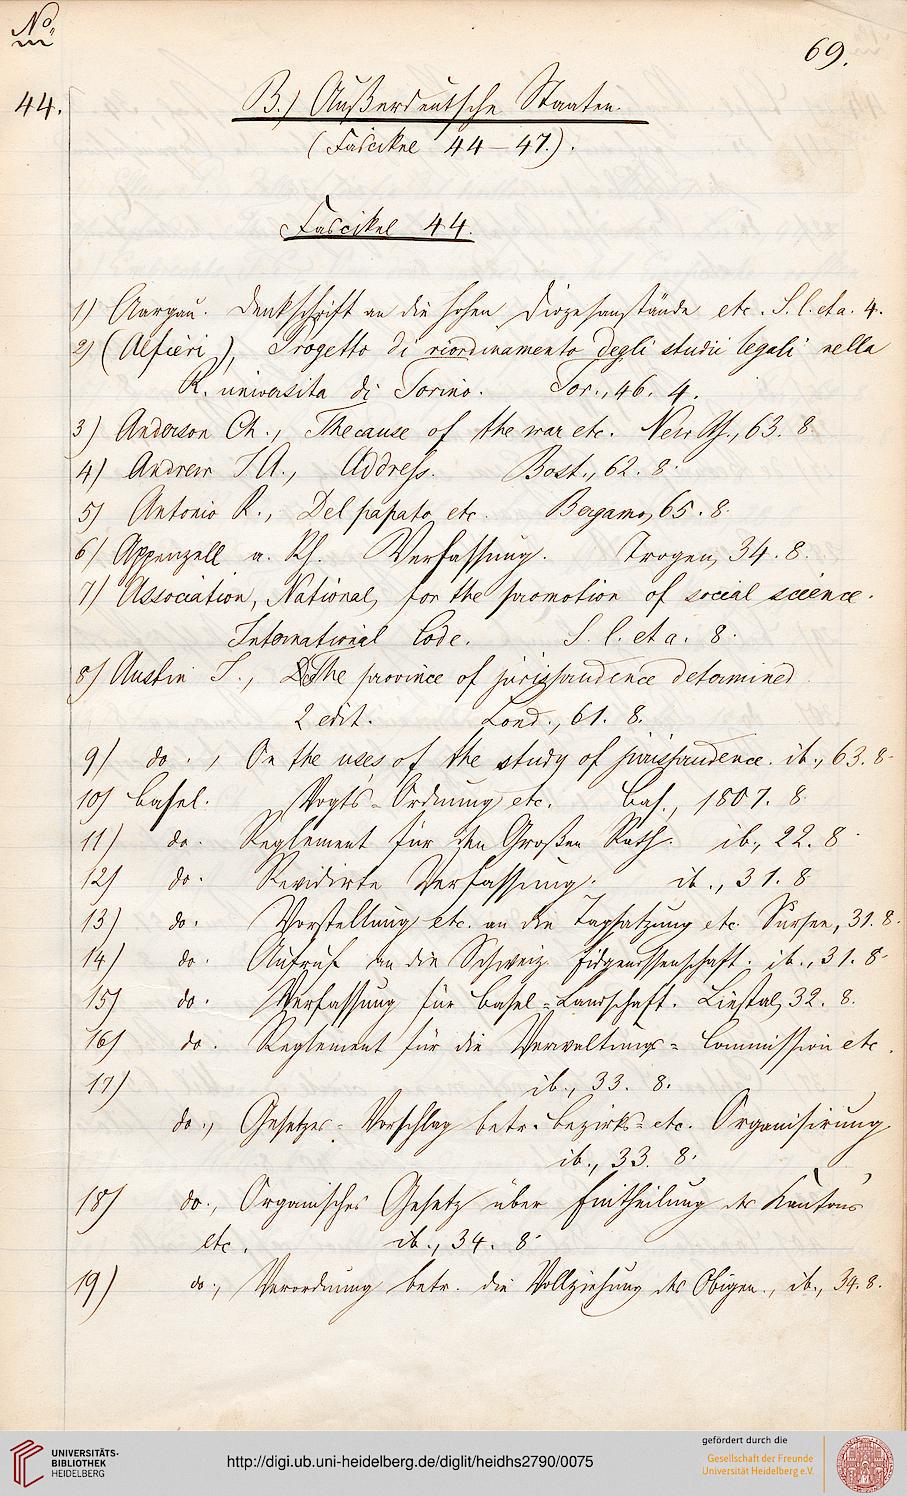 No.
69.
44.
B.) Außerdeutsche Staaten.
(Fascikel 44–47.).
Fascikel 44.
1) Aargau. Denkschrift an die hohen Diözesanstände etc. S. l. et a. 4.
2) (Alfieri), Progetto di riordinamento degli studii legali nella
R. universita di Torino. Tor., 46. 4.
3) Anderson Ch., The cause of the war etc. New Y., 63. 8.
4) Andrew J A., Address. Bost., 62. 8.
5) Antonio R., Del papato etc. Bergamo, 65. 8.
6) Appenzell a. Rh. Verfassung. Trogen, 34. 8.
7) Association, National, for the promotion of social science.
International Code. S. l. et a. 8.
8) Austin J., The province of jurisprudence determined.
2 edit. Lond., 61. 8.
9) do., On the uses of the study of jurisprudence. ib., 63. 8.
10) Basel. Vogts-Ordnung etc. Bas., 1807. 8.
11) do. Reglement für den Großen Rath. ib., 22. 8.
12) do. Revidirte Verfassung. ib., 31. 8.
13) do. Vorstellung etc. an die Tagsatzung etc. Sursee, 31. 8.
14) do. Aufruf an die Schweiz. Eidgenossenschaft. ib., 31. 8.
15) do. Verfassung für Basel=Landschaft. Liestal, 32. 8.
16) do. Reglement für die Verwaltungs=Commission etc.
17) ib., 33. 8.
do., Gesetzes=Vorschlag betr. Bezirks=etc. Organisirung.
ib., 33. 8.
18) do., Organisches Gesetz über Eintheilung des Kantons
etc. ib., 34. 8.
19) do., Verordnung betr. die Vollziehung des Obigen., ib., 34. 8.
UNIVERSITÄTS-
BIBLIOTHEK
HEIDELBERG
http://digi.ub.uni-heidelberg.de/diglit/heidhs2790/0075
gefördert durch die
Gesellschaft der Freunde
Universität Heidelberg e.V.